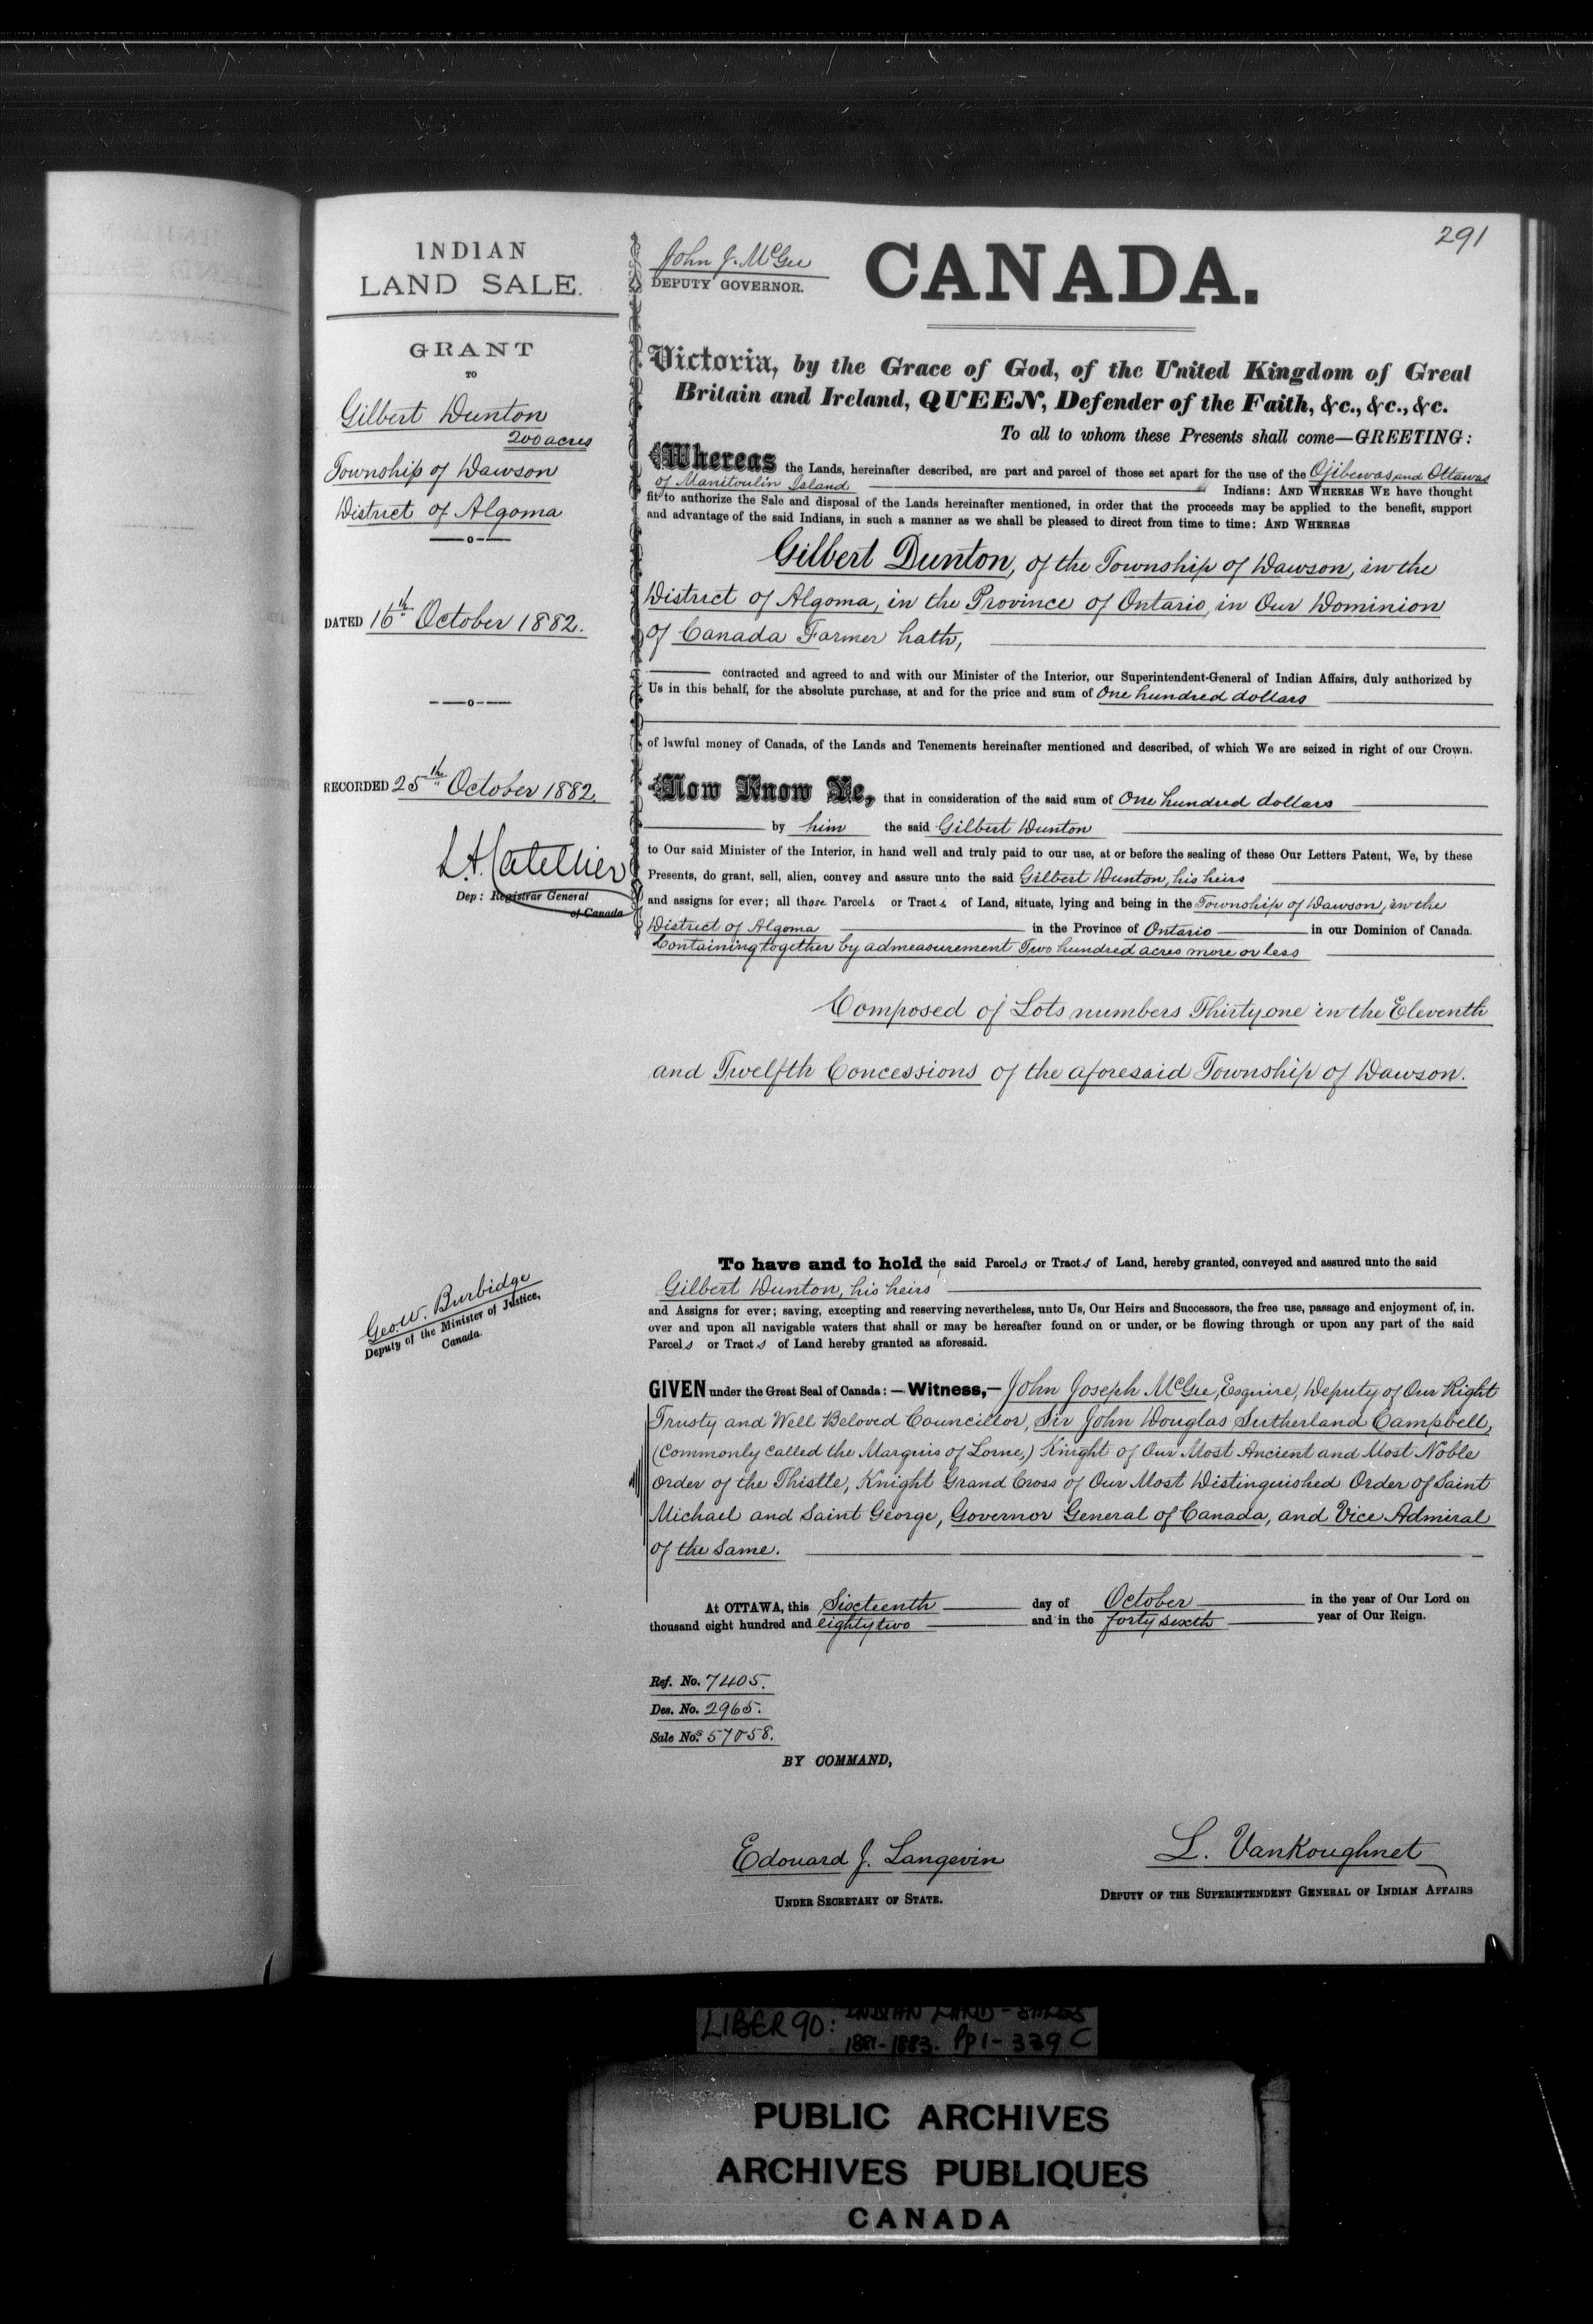 291
INDIAN
LAND SALE.
GRANT
TO
Gilbert Dunton
200 acres
Township of Dawson
District of Algoma
DATED 16th October 1882.
RECORDED 25th October 1882.
L.A. Catellier
Dep: Registrar General
of Canada
Geo. W. Burbidge
Deputy of the Minister of Justice,
Canada.
John J. McGee
DEPUTY GOVERNOR.
CANADA.
Victoria, by the Grace of God, of the United Kingdom of Great
Britain and Ireland, QUEEN, Defender of the Faith, &c., &c., &c.
To all to whom these Presents shall come—GREETING:
Whereas the Lands, hereinafter described, are part and parcel of those set apart for the use of the Ojibewas and Ottawas
of Manitoulin Island Indians: AND WHEREAS WE have thought
fit to authorize the Sale and disposal of the Lands hereinafter mentioned, in order that the proceeds may be applied to the benefit, support
and advantage of the said Indians, in such a manner as we shall be pleased to direct from time to time: AND WHEREAS
Gilbert Dunton, of the Township of Dawson, in the
District of Algoma, in the Province of Ontario, in Our Dominion
of Canada Farmer hath,
contracted and agreed to and with our Minister of the Interior, our Superintendent-General of Indian Affairs, duly authorized by
Us in this behalf, for the absolute purchase, at and for the price and sum of One hundred dollars
of lawful money of Canada, of the Lands and Tenements hereinafter mentioned and described, of which We are seized in right of our Crown.
Now Know Ye, that in consideration of the said sum of One hundred dollars
by him the said Gilbert Dunton
to Our said Minister of the Interior, in hand well and truly paid to our use, at or before the sealing of these Our Letters Patent, We, by these
Presents, do grant, sell, alien, convey and assure unto the said Gilbert Dunton, his heirs
and assigns for ever; all those Parcels or Tracts of Land, situate, lying and being in the Township of Dawson, in the
District of Algoma in the Province of Ontario in our Dominion of Canada.
Containing together by admeasurement Two hundred acres more or less
Composed of Lots numbers Thirty one in the Eleventh
and Twelfth Concessions of the aforesaid Township of Dawson.
To have and to hold the said Parcels or Tracts of Land, hereby granted, conveyed and assured unto the said
Gilbert Dunton, his heirs
and Assigns for ever; saving, excepting and reserving nevertheless, unto Us, Our Heirs and Successors, the free use, passage and enjoyment of, in.
over and upon all navigable waters that shall or may be hereafter found on or under, or be flowing through or upon any part of the said
Parcels or Tracts of Land hereby granted as aforesaid.
GIVEN under the Great Seal of Canada:—Witness,—John Joseph McGee, Esquire, Deputy of Our Right
Trusty and Well Beloved Councillor, Sir John Douglas Sutherland Campbell,
(Commonly called the Marquis of Lorne,) Knight of Our Most Ancient and Most Noble
Order of the Thistle, Knight Grand Cross of Our Most Distinguished Order of Saint
Michael and Saint George, Governor General of Canada, and Vice Admiral
of the Same.
At OTTAWA, this Sixteenth day of October in the year of Our Lord on
thousand eight hundred and eighty two and in the forty sixth year of Our Reign.
Ref. No. 7405.
Des. No. 2965.
Sale Nos. 57058.
BY COMMAND,
Edouard J. Langevin
UNDER SECRETARY OF STATE.
L. VanKoughnet
DEPUTY OF THE SUPERINTENDENT GENERAL OF INDIAN AFFAIRS
LIBER 90: INDIAN LAND - SALES
1881-1883. Pp 1-339 C
PUBLIC ARCHIVES
ARCHIVES PUBLIQUES
CANADA